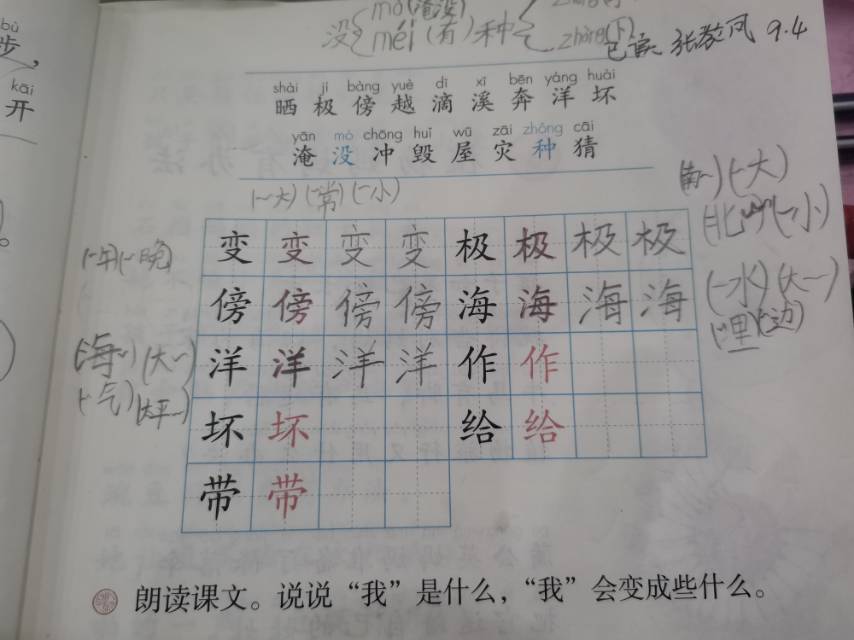 bù
步，
kāi
开
没 mò(淹没) méi(有) 种
已读 张敬凤 9.4
shài jí bàng yuè dī xī bēn yáng huài
晒 极 傍 越 滴 溪 奔 洋 坏
yān mò chōng huǐ wū zāi zhòng cāi
淹 没 冲 毁 屋 灾 种 猜
(一大) (一常) (一小)
(南一) (一大)
(北一) (一小)
变 变 变 变 极 极 极 极
(一午) (一晚)
傍 傍 傍 傍 海 海 海 海
(一水) (大一)
(一里) (一边)
洋 洋 洋 洋 作 作
(海一) (大一)
(一气) (太平一)
坏 坏 给 给
带 带
朗读课文。说说“我”是什么，“我”会变成些什么。